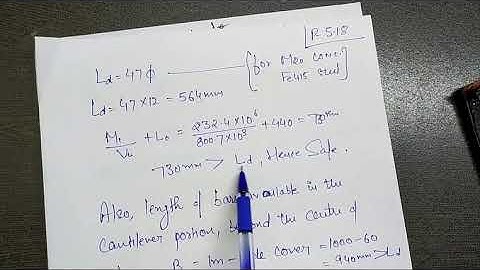 P. 5.18
Ld = 47 φ — { for M20 conc. Fe415 steel }
Ld = 47 × 12 = 564 mm
M1/Vu + L0 = 232.4 × 10⁶ / 800.7 × 10³ + 440 = 730 mm
730 mm > Ld, Hence Safe.
Also, length of bars available in the
cantilever portion, beyond the centre of
= 1m - cover = 1000 - 60
= 940 mm > Ld